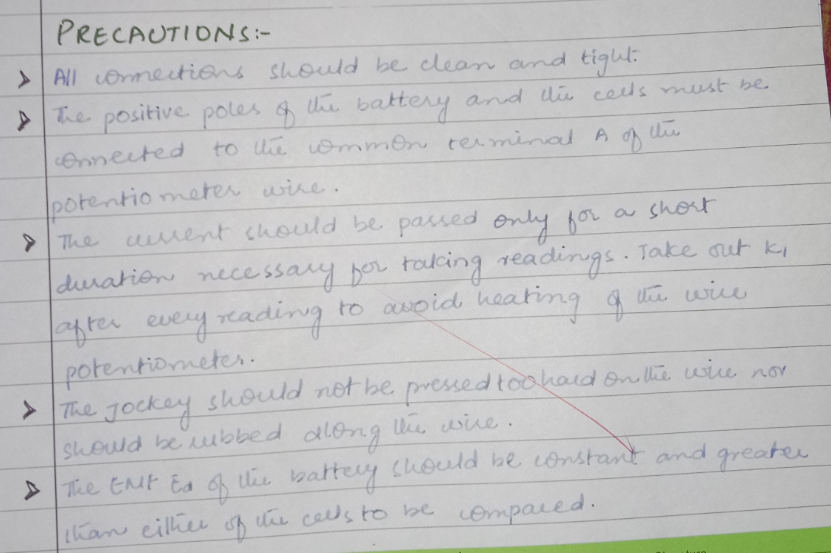 PRECAUTIONS:-
All connections should be clean and tight.
The positive poles of the battery and the cells must be
connected to the common terminal A of the
potentiometer wire.
The current should be passed only for a short
duration necessary for taking readings. Take out K1
after every reading to avoid heating of the wire
potentiometer.
The Jockey should not be pressed too hard on the wire nor
should be rubbed along the wire.
The EMF Ed of the battery should be constant and greater
than either of the cells to be compared.